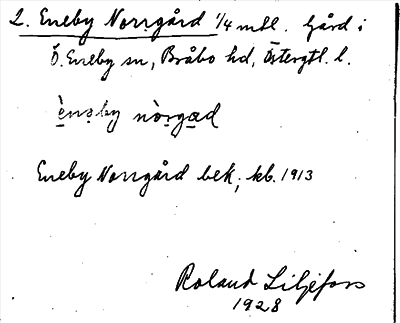 2. Eneby Norrgård 1/4 mtl. Gård i
Ö. Eneby sn, Bråbo hd, Östergtl. l.
ènəby nòrgạd
Eneby Norrgård bek; kb. 1913
Roland Liljefors
1928